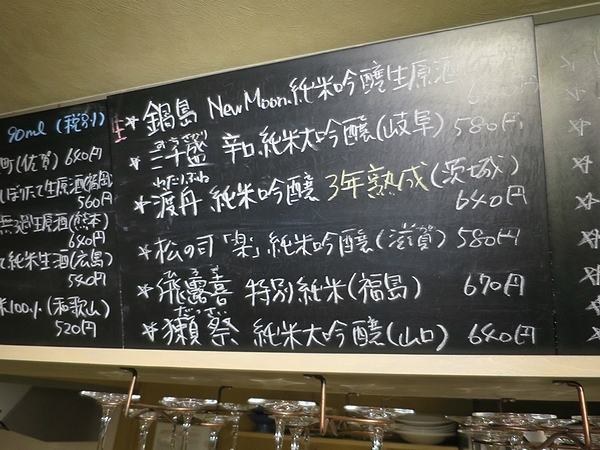 90ml (税別)
町(佐賀) 640円
しぼりたて生原酒(福岡)
560円
無濾過生原酒(熊本)
640円
純米生酒(広島)
540円
米100%(和歌山)
520円
生*鍋島 New Moon.純米吟醸生原酒
*三千盛 辛口 純米大吟醸(岐阜) 580円
わたりふね
*渡舟 純米吟醸 3年熟成(茨城)
640円
*松の司「楽」純米吟醸(滋賀) 580円
*飛露喜 特別純米(福島) 670円
だっさい
*獺祭 純米大吟醸(山口) 640円